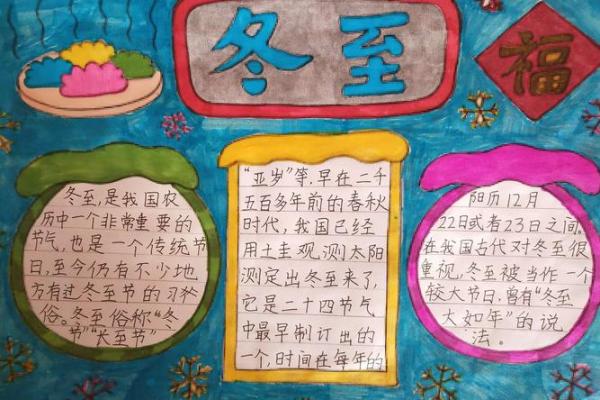 冬至
福
冬至,是我国农
历中一个非常重要的
节气,也是一个传统节
日,至今仍有不少地
方有过冬至节的习俗
俗。冬至俗称“冬
节”“长至节”
“亚岁”等,早在二千
五百多年前的春秋
时代,我国已经
用土圭观测太阳
测定出冬至来了,
它是二十四节气
中最早制订出的
一个,时间在每年的
阳历12月
22日或者23日之间。
在我国古代对冬至很
重视,冬至被当作一个
较大节日,曾有“冬至
大如年”的说
法。